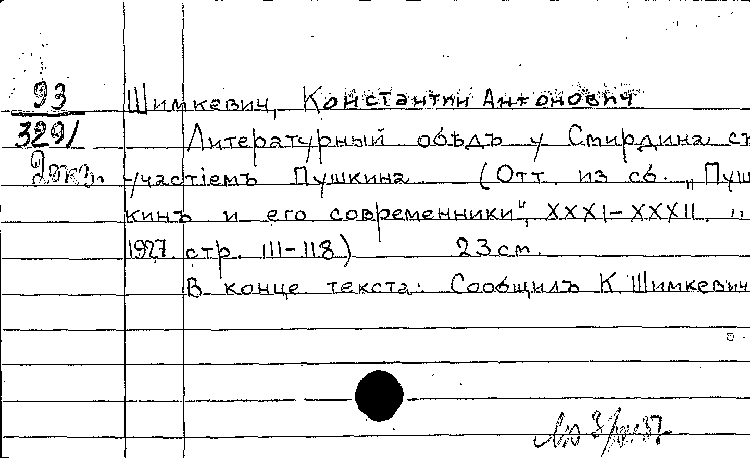 93 Шимкевич, Константин Антонович
3291 Литературный обѣдъ у Смирдина съ
2 экз. участіемъ Пушкина (Отт. из сб. „Пуш
кинъ и его современники", XXXI-XXXII.
1927. стр. 111-118) 23 cm.
В конце текста: Сообщилъ К. Шимкевич